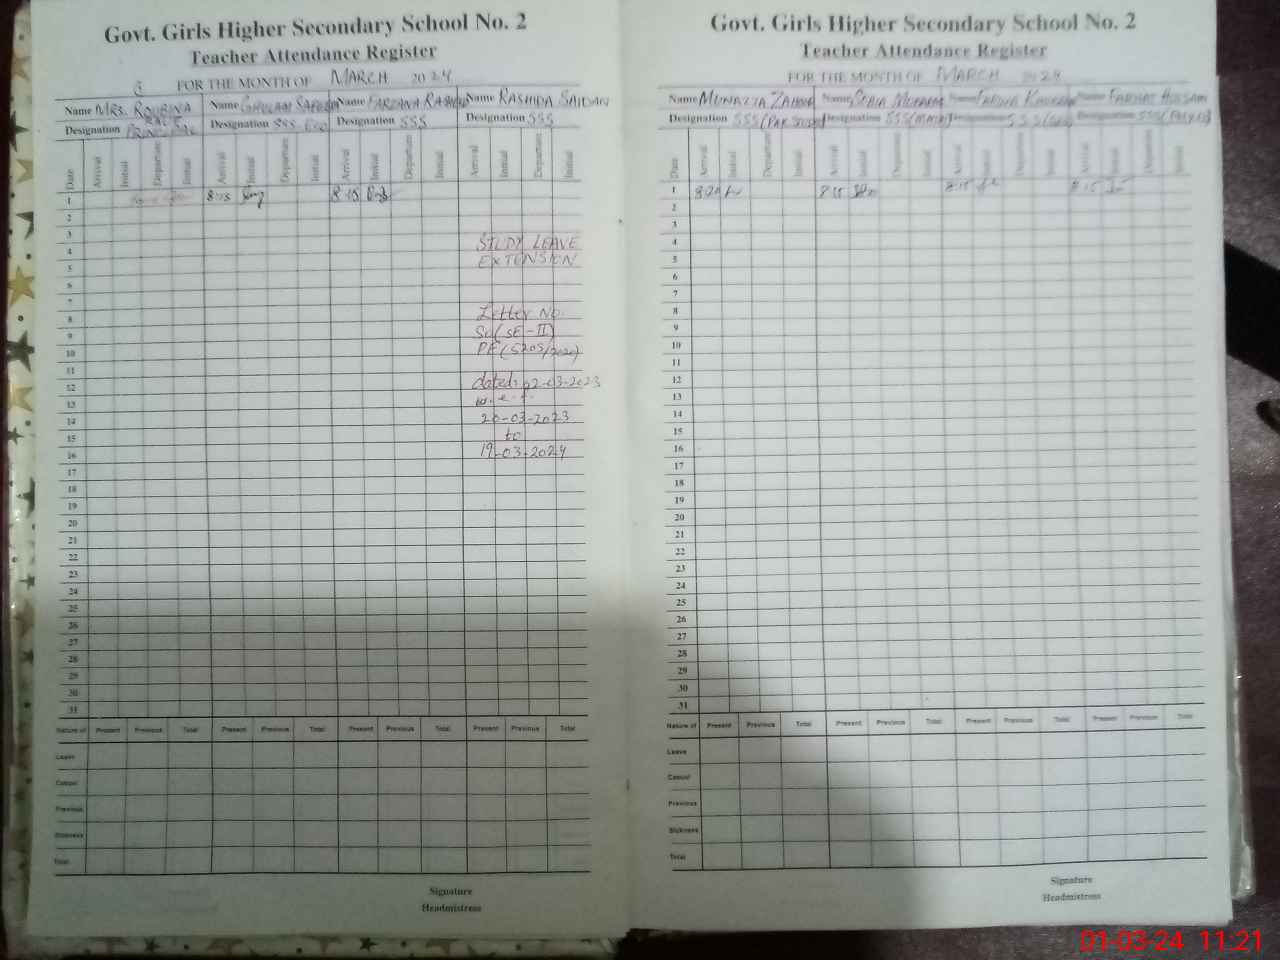 Govt. Girls Higher Secondary School No. 2
Teacher Attendance Register
FOR THE MONTH OF MARCH 2024
Name MRS. ROUBINA Name GHULAM Name FARZANA Name RASHIDA SAIDAN
Designation PRINCIPAL Designation SSS Designation SSS Designation SSS
Date Arrival Initial Departure Initial Arrival Initial Departure Initial Arrival Initial Departure Initial Arrival Initial Departure Initial
1 8:15 8:15
2
3
4 STUDY LEAVE
5 EXTENSION
6
7
8 Letter No.
9 So(SE-II)
10 PF(5205/2020)
11
12 dated: 02-03-2023
13 w.e.f.
14 20-03-2023
15 to
16 19-03-2024
17
18
19
20
21
22
23
24
25
26
27
28
29
30
31
Nature of Present Previous Total Present Previous Total Present Previous Total Present Previous Total
Leave
Casual
Previous
Sickness
Total
Signature
Headmistress
Govt. Girls Higher Secondary School No. 2
Teacher Attendance Register
FOR THE MONTH OF MARCH 2024
Name MUNAZZA ZAHOOR Name SOBIA Name Name FARHAT
Designation SSS(PAK STUDY) Designation SSS Designation SSS Designation SSS
Date Arrival Initial Departure Initial Arrival Initial Departure Initial Arrival Initial Departure Initial Arrival Initial Departure Initial
1 8:20 8:15 8:15 8:15
2
3
4
5
6
7
8
9
10
11
12
13
14
15
16
17
18
19
20
21
22
23
24
25
26
27
28
29
30
31
Nature of Present Previous Total Present Previous Total Present Previous Total Present Previous Total
Leave
Casual
Previous
Sickness
Total
Signature
Headmistress
01-03-24 11:21